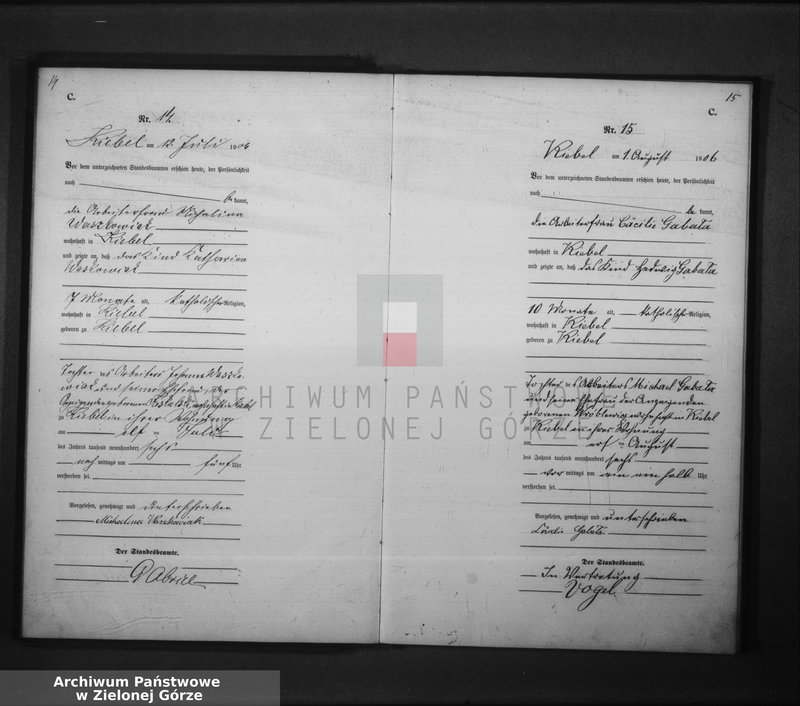 14
C.
Nr. 14.
Kiebel am 12. Juli 1906
Vor dem unterzeichneten Standesbeamten erschien heute, der Persönlichkeit
nach
be kannt,
die Arbeiterfrau Michalina
Waszkowiak
wohnhaft in Kiebel
und zeigte an, daß das Kind Katharina
Waszkowiak
7 Monate alt, katholischer Religion,
wohnhaft in Kiebel
geboren zu Kiebel
Tochter des Arbeiters Waszko-
wiak und seiner Ehefrau, der
zu Kiebel in ihrer Wohnung
am elf ten Juli
des Jahres tausend neunhundert sechs
nach mittags um fünf Uhr
verstorben sei.
Vorgelesen, genehmigt und unterschrieben
Michalina Waszkowiak
Der Standesbeamte.
15
C.
Nr. 15
Kiebel am 1. August 1906
Vor dem unterzeichneten Standesbeamten erschien heute, der Persönlichkeit
nach
be kannt,
die Arbeiterfrau Cäcilie Gabata
wohnhaft in Kiebel
und zeigte an, daß das Kind Hedwig Gabata
10 Monate alt, katholischer Religion,
wohnhaft in Kiebel
geboren zu Kiebel
Tochter des Arbeiters Michael Gabata
und seiner Ehefrau der Anzeigenden
geborenen wohnhaft in Kiebel
zu Kiebel in ihrer Wohnung
am ersten August
des Jahres tausend neunhundert sechs
vor mittags um ein ein halb Uhr
verstorben sei.
Vorgelesen, genehmigt und unterschrieben
Cäcilie Gabata
Der Standesbeamte.
In Vertretung
Vogel
ARCHIWUM PAŃSTW
ZIELONEJ GÓRZE
Archiwum Państwowe
w Zielonej Górze